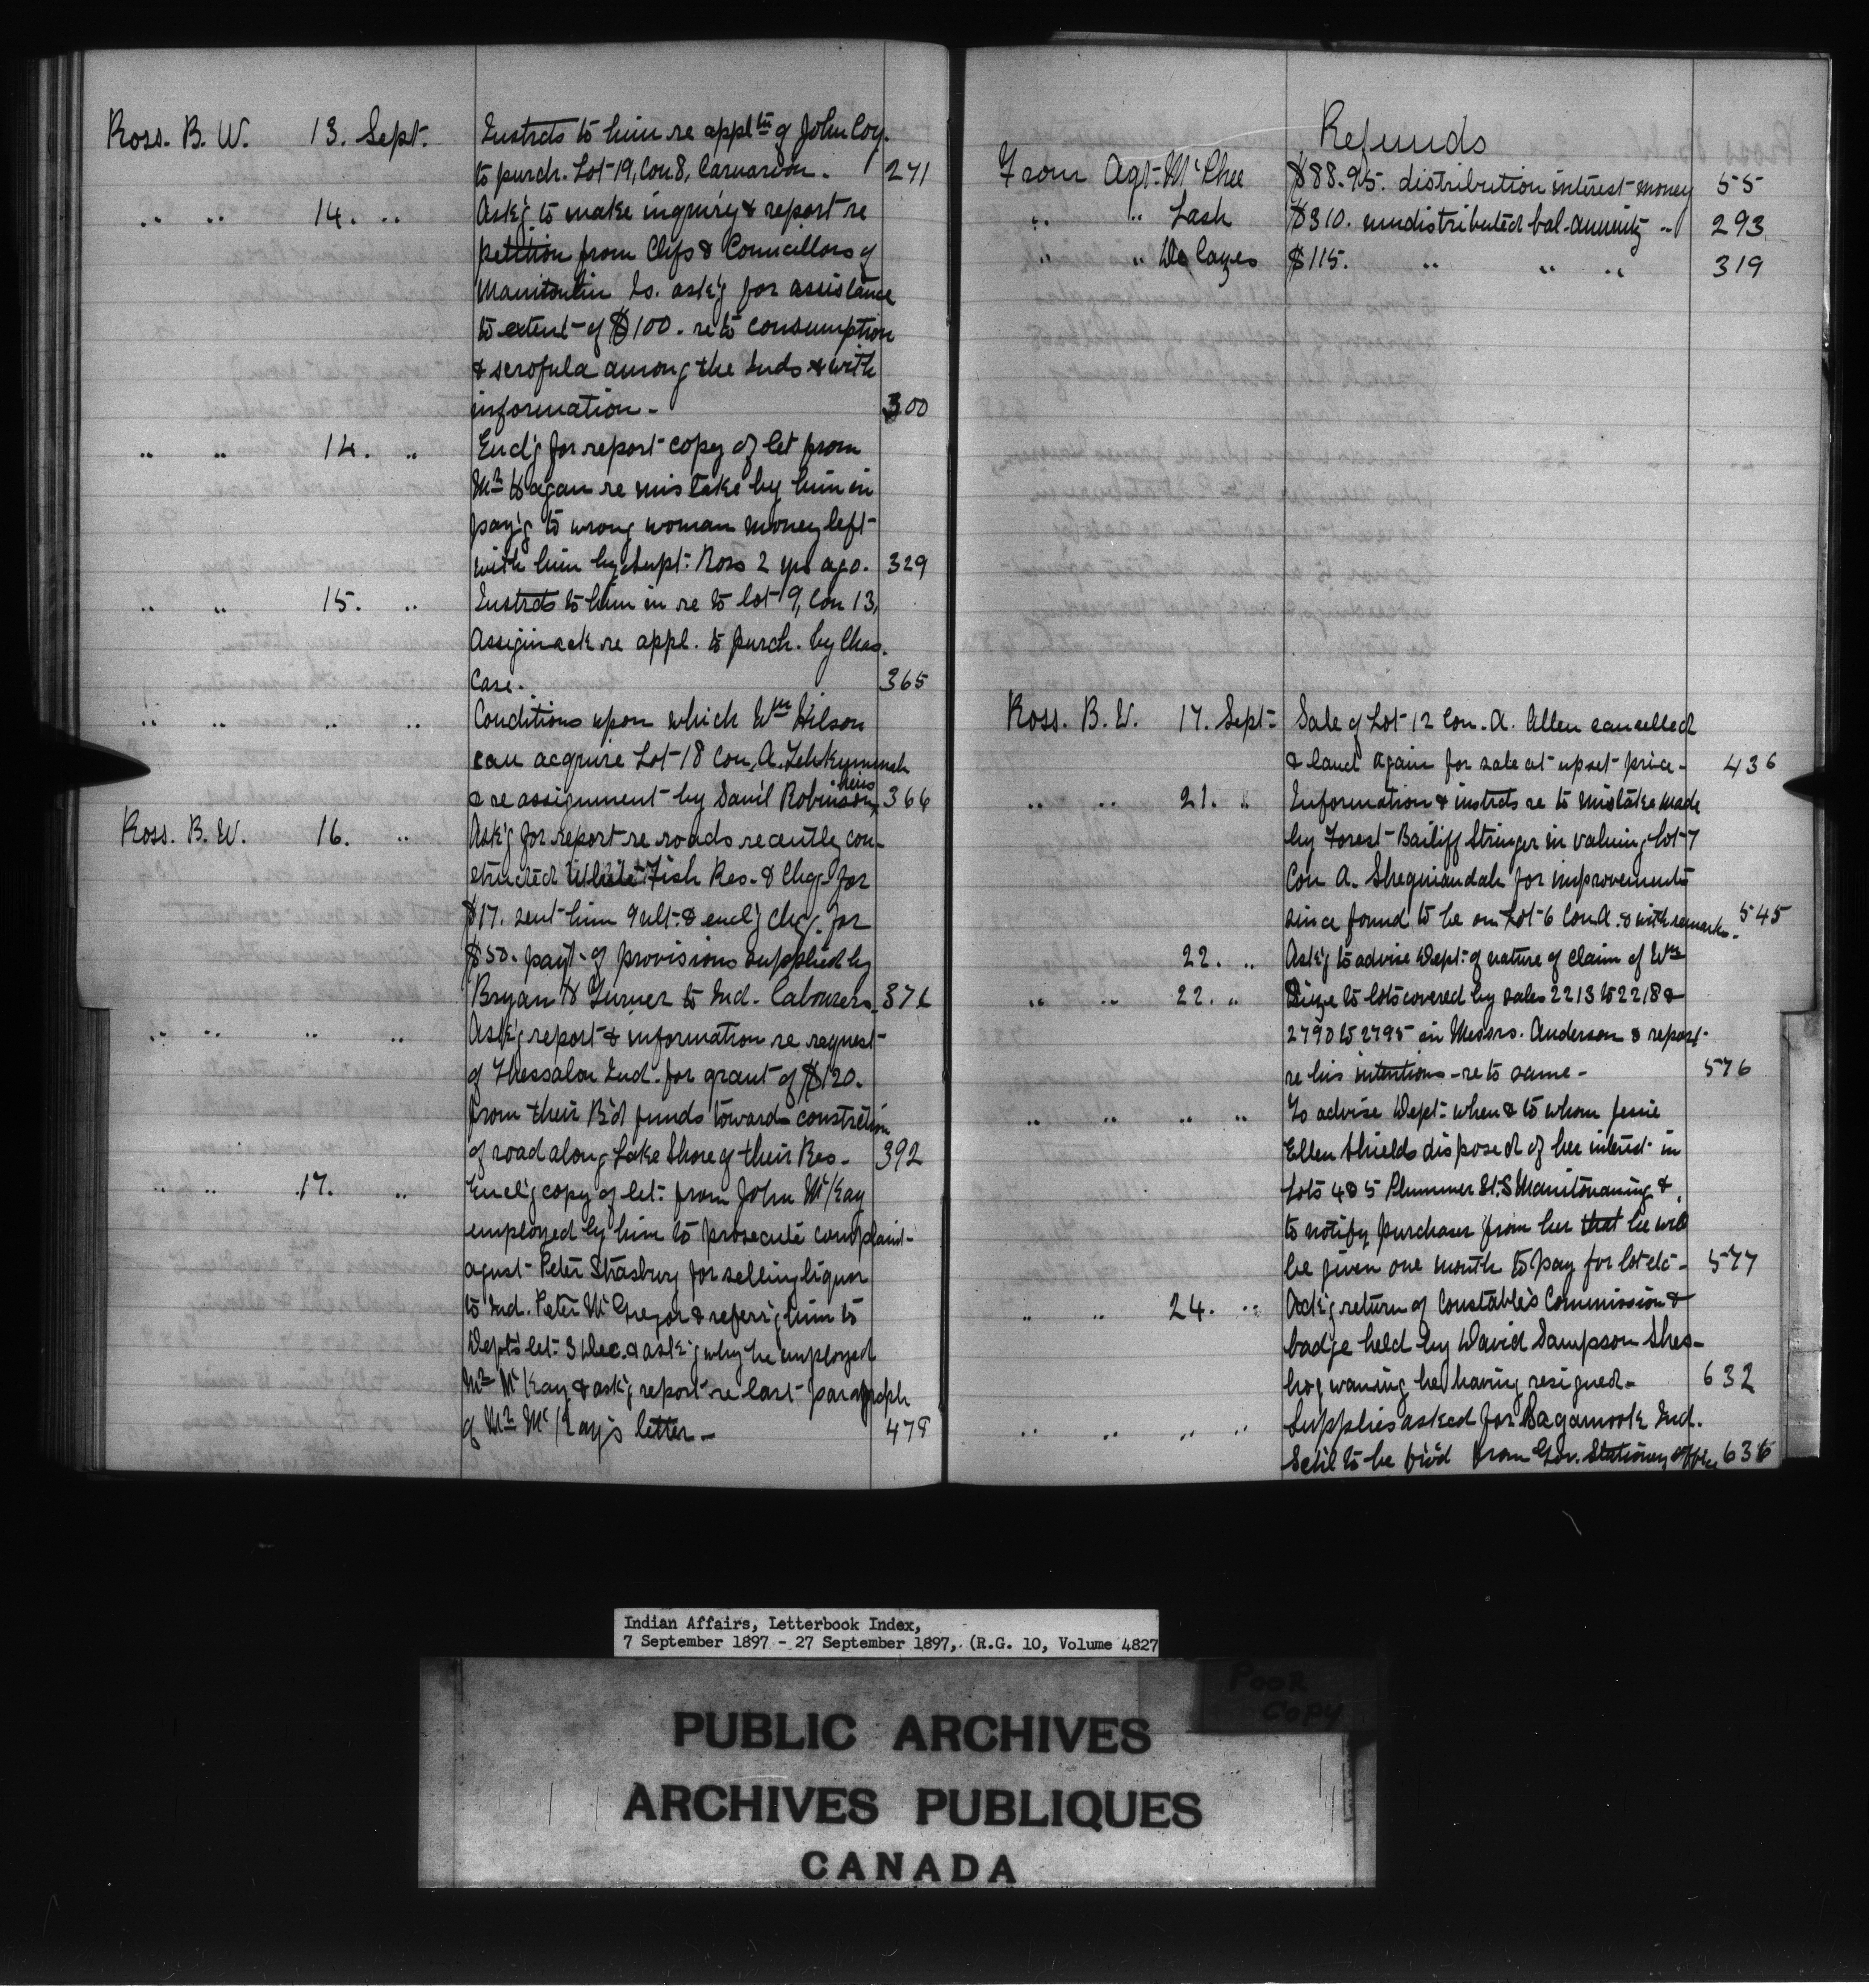 Ross. B. W. 13. Sept. Instrcts to him re appltn of John Coy.
to purch. Lot 19, Con 8, Carnarvon. 271
.. .. 14. .. Ask'g to make inquiry & report re
petition from Chfs & Councillors of
Manitoulin Is. ask'g for assistance
to extent of $100. re to consumption
& scrofula among the Inds & with
information - 300
.. .. 14. .. Encl'g for report copy of let from
Mr Hagan re mistake by him in
pay'g to wrong woman money left
with him by Supt: Ross 2 yrs ago. 329
.. .. 15. .. Instrcts to him in re to lot 9, Con 13,
Assiginack re appl. to purch. by Chas.
Case. 365
.. .. .. .. Conditions upon which Wm Hilson
can acquire Lot 18 Con. A. Tehkummah
& re assignment by Dan'l Robinson, heirs 366
Ross. B. W. 16. .. Ask'g for report re roads recently con-
structed White Fish Res. & Chq. for
$17. sent him 9 ult. & encl'g chq. for
$50. payt. of provisions supplied by
Bryan & Turner to Ind. labourers. 376
.. .. .. .. Ask'g report & information re request
of Thessalon Ind. for grant of $120.
from their B'd funds towards constrction
of road along Lake Shore of their Res. 392
.. .. 17. .. Encl'g copy of let: from John McKay
employed by him to prosecute complaint
agnst Peter Strasburg for selling liquor
to Ind. Peter McGregor & referr'g him to
Dept's let: 3 Dec. & ask'g why he employed
Mr McKay & ask'g report re last paragraph
of Mr McKay's letter - 479
Refunds
From Agt. McPhee $88.95. distribution interest money 55
.. .. Lash $310. undistributed bal. annuity .. 293
.. .. De Cazes $115. .. .. .. 319
Ross. B. W. 17. Sept: Sale of Lot 12 Con. A. Allen cancelled
& land again for sale at upset price - 436
.. .. 21. .. Information & instrcts re to mistake made
by Forest Bailiff Stringer in valuing Lot 7
Con A. Sheguiandah for improvements
since found to be on Lot 6 Con A. & with remarks. 545
22. .. Ask'g to advise Dept: of nature of claim of Wm
.. .. 22. .. to lots covered by sales 2213 to 2218 &
2790 to 2795 in Messrs. Anderson & report
re his intentions re to same - 576
.. .. .. .. To advise Dept: when & to whom Jessie
Ellen Shields disposed of her interest in
Lots 4 & 5 Plummer St. S Manitowaning &
to notify purchaser from her that he will
be given one month to pay for lot etc - 577
.. .. 24. .. Ack'g return of Constable's Commission &
badge held by David Sampson Shes-
hegwaning he having resigned - 632
.. .. .. .. Supplies asked for Ind.
Schl to be from Gov. Stationery Office 636
Indian Affairs, Letterbook Index,
7 September 1897 - 27 September 1897, (R.G. 10, Volume 4827
POOR
COPY
PUBLIC ARCHIVES
ARCHIVES PUBLIQUES
CANADA